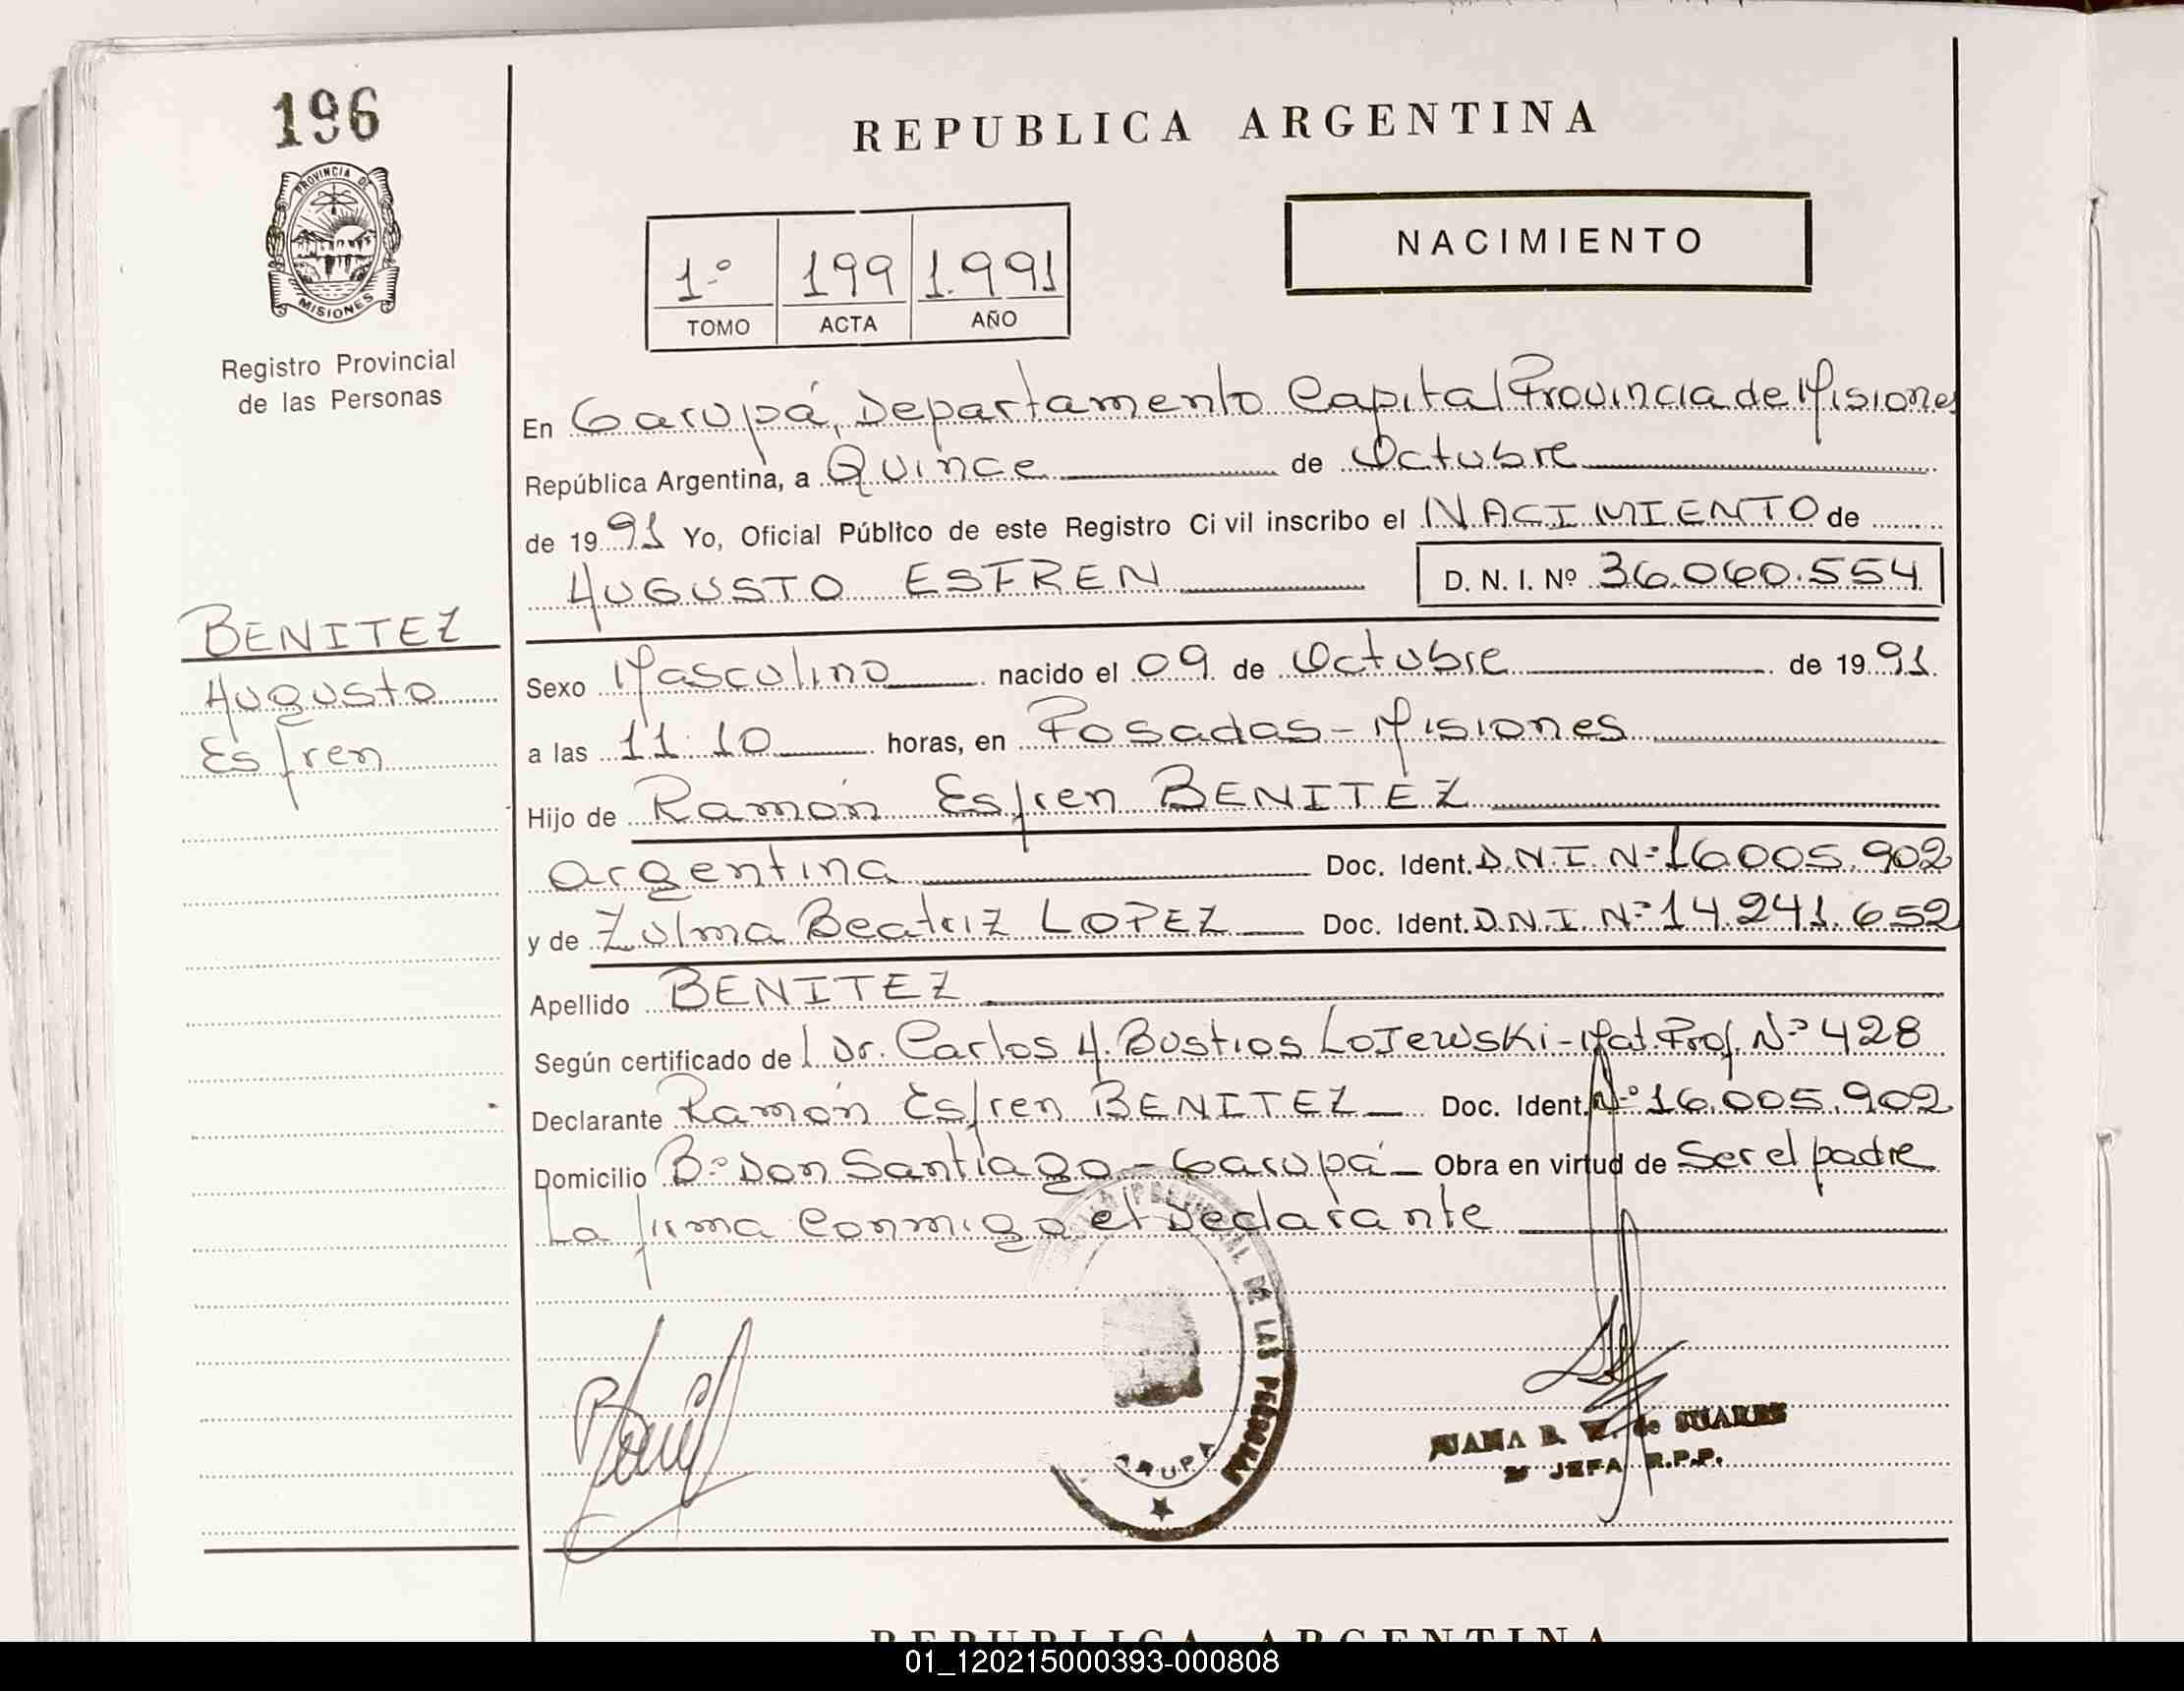 196
PROVINCIA DE
MISIONES
Registro Provincial
de las Personas
REPUBLICA ARGENTINA
NACIMIENTO
1º 199 1.991
TOMO ACTA AÑO
En Garupá, Departamento Capital Provincia de Misiones
República Argentina, a Quince de Octubre
de 1991 Yo, Oficial Público de este Registro Civil inscribo el NACIMIENTO de
AUGUSTO ESFREN D. N. I. Nº 36.060.554
BENITEZ
Augusto
Esfren
Sexo Masculino nacido el 09 de Octubre de 1991.
a las 11:10 horas, en Posadas - Misiones
Hijo de Ramón Esfren BENITEZ
argentina Doc. Ident. D.N.I. Nº 16.005.902
y de Zulma Beatriz LOPEZ Doc. Ident. D.N.I. Nº 14.241.652
Apellido BENITEZ
Según certificado del Dr. Carlos A. Bustios Lojewski - Mat. Prof. Nº 428
Declarante Ramón Esfren BENITEZ Doc. Ident. Nº 16.005.902
Domicilio Bº Don Santiago - Garupá - Obra en virtud de Ser el padre
La firma conmigo el Declarante
DE LAS PERSONAS
JUANA B. de SUARES
JEFA R.P.P.
REPUBLICA ARGENTINA
01_120215000393-000808